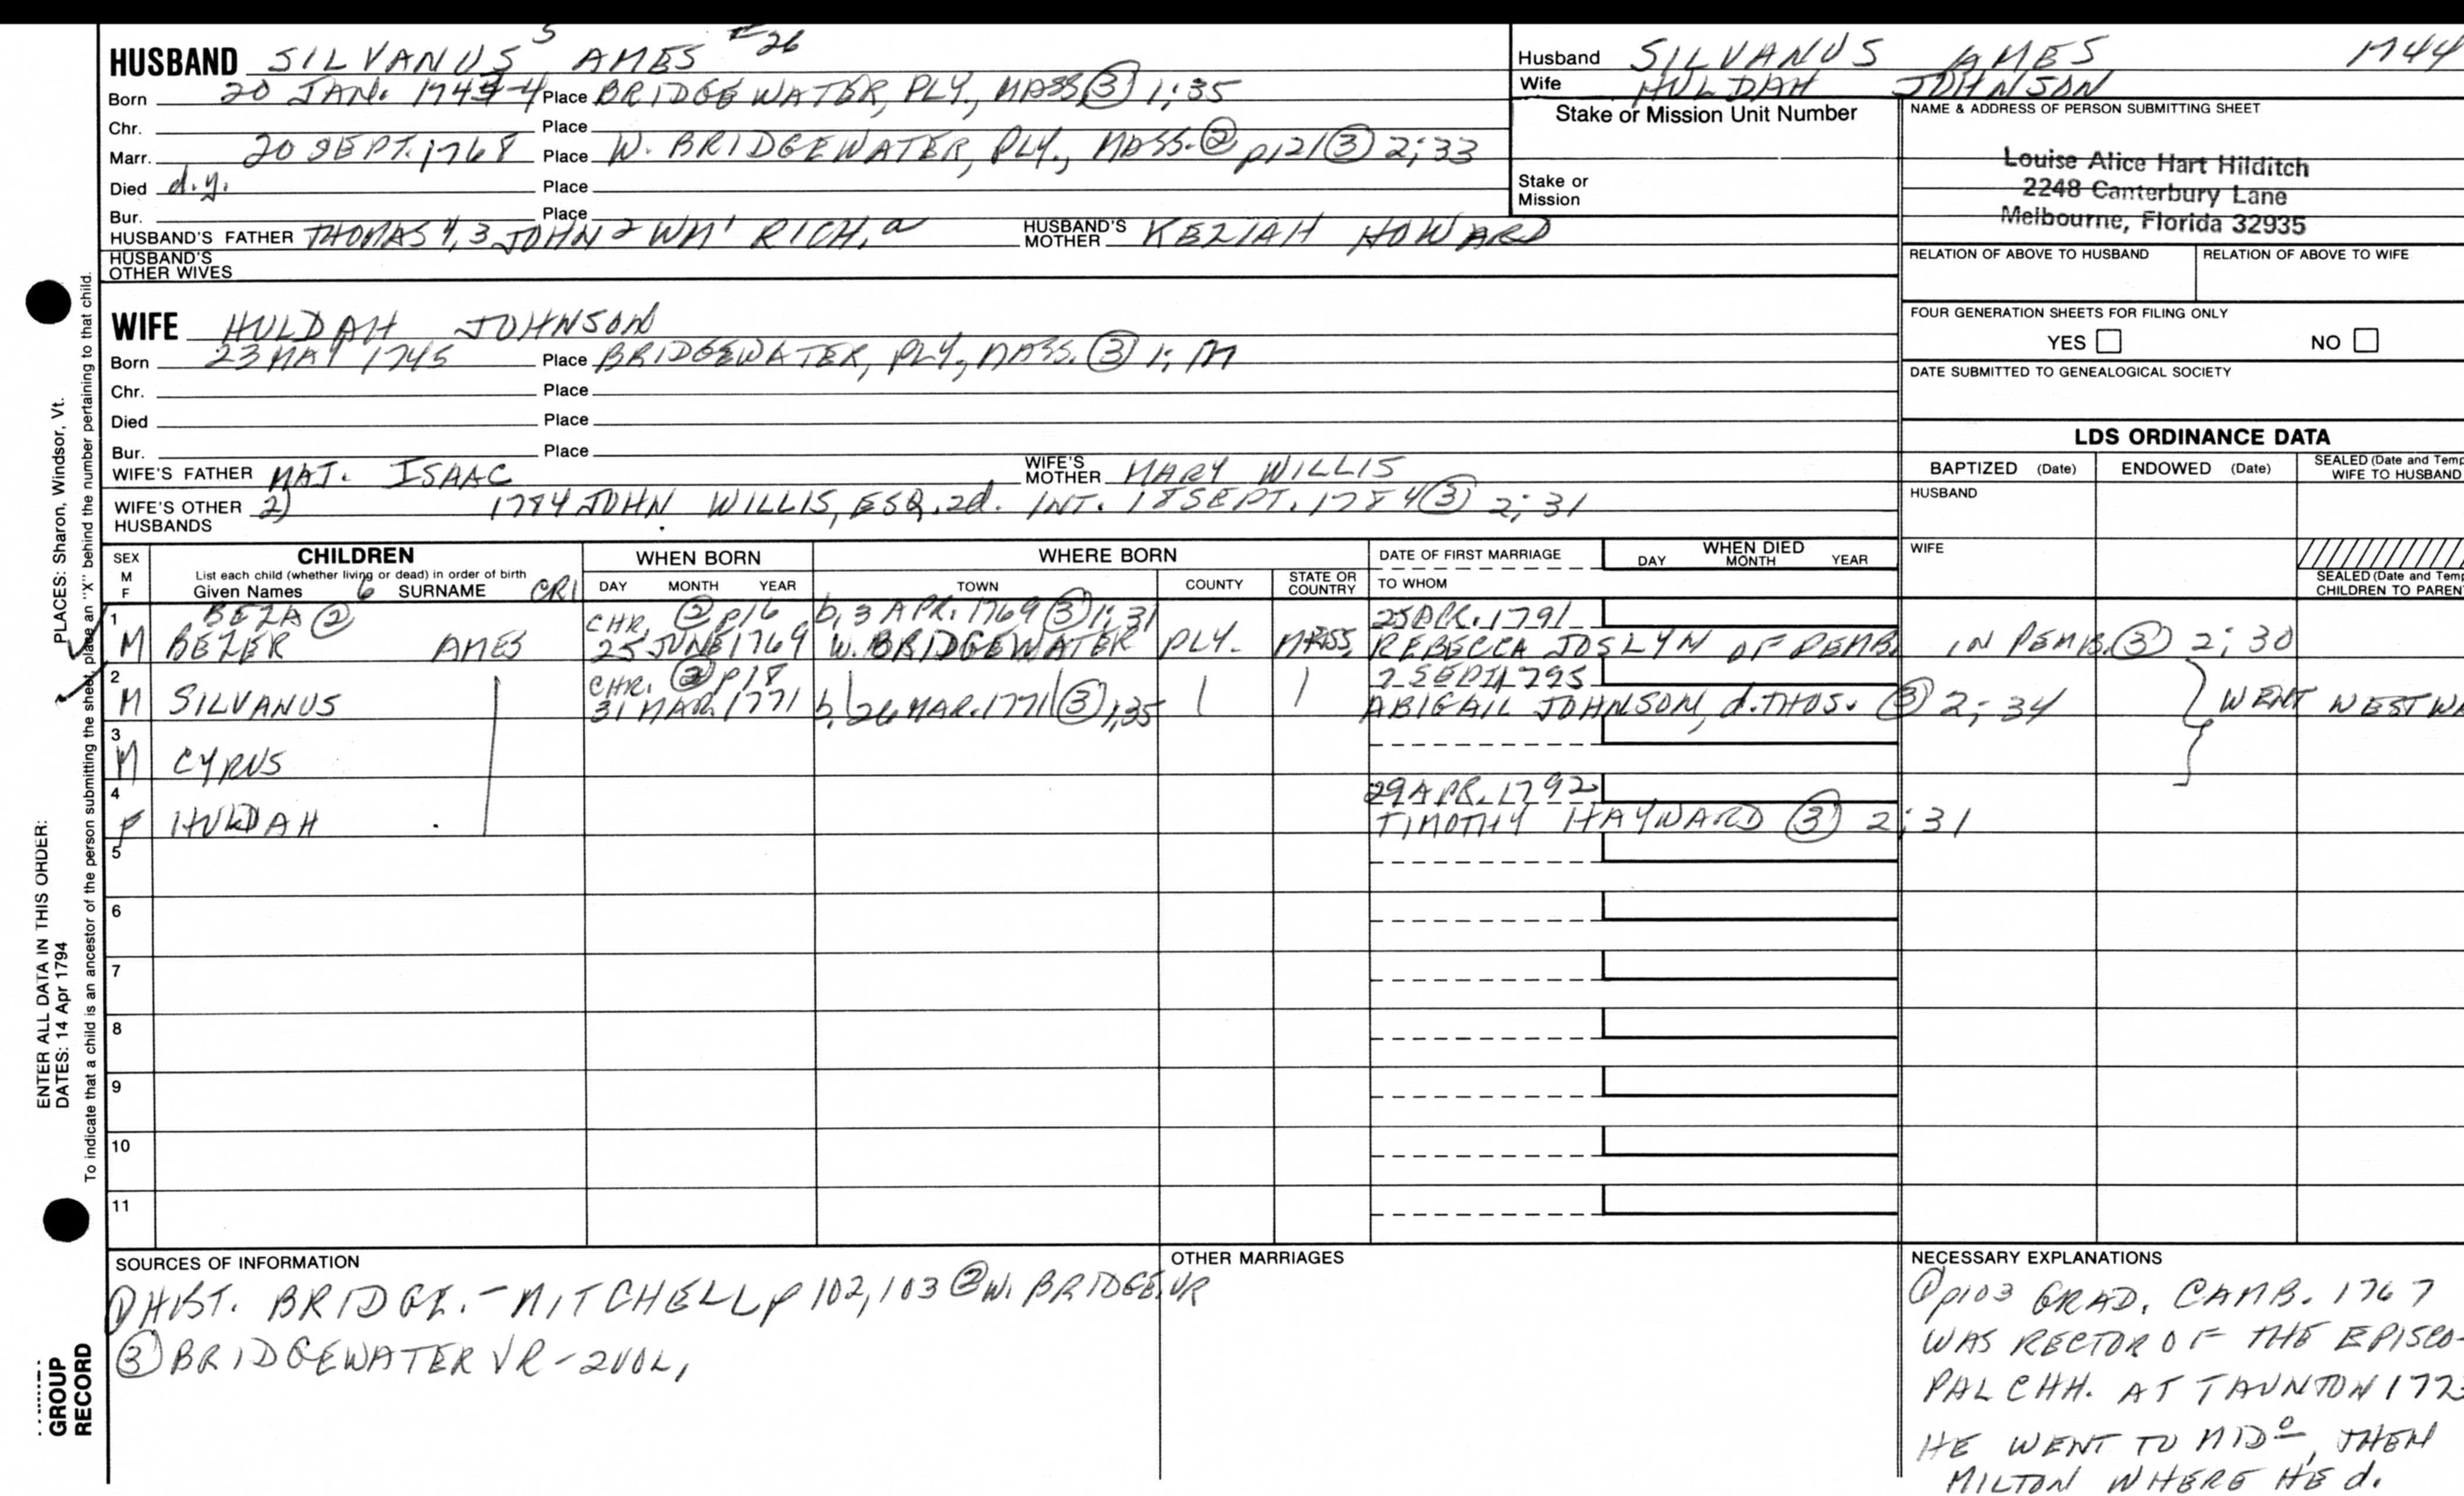 HUSBAND SILVANUS 5 AMES #26
Born 20 JAN. 1743-4 Place BRIDGEWATER, PLY., MASS ③ 1;35
Chr. Place
Marr. 20 SEPT. 1768 Place W. BRIDGEWATER, PLY., MASS. ② p121 ③ 2;33
Died d.y. Place
Bur. Place
HUSBAND'S FATHER THOMAS 4, 3 JOHN 2 WM 1 RICH. a HUSBAND'S MOTHER KEZIAH HOWARD
HUSBAND'S OTHER WIVES
Husband SILVANUS AMES 1744
Wife HULDAH JOHNSON
Stake or Mission Unit Number
Stake or
Mission
NAME & ADDRESS OF PERSON SUBMITTING SHEET
Louise Alice Hart Hilditch
2248 Canterbury Lane
Melbourne, Florida 32935
RELATION OF ABOVE TO HUSBAND RELATION OF ABOVE TO WIFE
FOUR GENERATION SHEETS FOR FILING ONLY
YES NO
DATE SUBMITTED TO GENEALOGICAL SOCIETY
WIFE HULDAH JOHNSON
Born 23 MAY 1745 Place BRIDGEWATER, PLY., MASS. ③ 1;
Chr. Place
Died Place
Bur. Place
WIFE'S FATHER MAJ. ISAAC WIFE'S MOTHER MARY WILLIS
WIFE'S OTHER HUSBANDS 2) 1784 JOHN WILLIS, ESQ. 2d. INT. 18 SEPT. 1784 ③ 2;31
LDS ORDINANCE DATA
BAPTIZED (Date) ENDOWED (Date) SEALED (Date and Temp
WIFE TO HUSBAND
HUSBAND
WIFE
SEALED (Date and Temp
CHILDREN TO PAREN
SEX M F CHILDREN WHEN BORN WHERE BORN DATE OF FIRST MARRIAGE WHEN DIED
List each child (whether living or dead) in order of birth DAY MONTH YEAR TOWN COUNTY STATE OR COUNTRY TO WHOM DAY MONTH YEAR
Given Names 6 SURNAME CR1
1 BEZA ② CHR. ② p16 b, 3 APR. 1769 ③ 1;31 25 1791
M BEZER AMES 25 JUNE 1769 W. BRIDGEWATER PLY. MASS. REBECCA JOSLYN OF PEMB. IN PEMB. ③ 2;30
2 CHR. ② p18 2 SEPT 1795
M SILVANUS 31 MAR. 1771 b. 26 MAR. 1771 ③ 1;35 ABIGAIL JOHNSON, d. THOS. ③ 2;34 WENT WEST
3
M CYRUS
4 29 APR. 1792
F HULDAH TIMOTHY HAYWARD ③ 2;31
5
6
7
8
9
10
11
SOURCES OF INFORMATION
① HIST. BRIDGE. - MITCHELL p 102, 103 ② W. BRIDGE. VR
③ BRIDGEWATER VR - 2 VOL.
OTHER MARRIAGES
NECESSARY EXPLANATIONS
① p103 GRAD. CAMB. 1767
WAS RECTOR OF THE EPISCO-
PAL CHH. AT TAUNTON
HE WENT TO MD, THEN
MILTON WHERE HE d.
PLACES: Sharon, Windsor, Vt.
To indicate that a child is an ancestor of the person submitting the sheet, place an "X" behind the number pertaining to that child.
ENTER ALL DATA IN THIS ORDER:
DATES: 14 Apr 1794
GROUP
RECORD